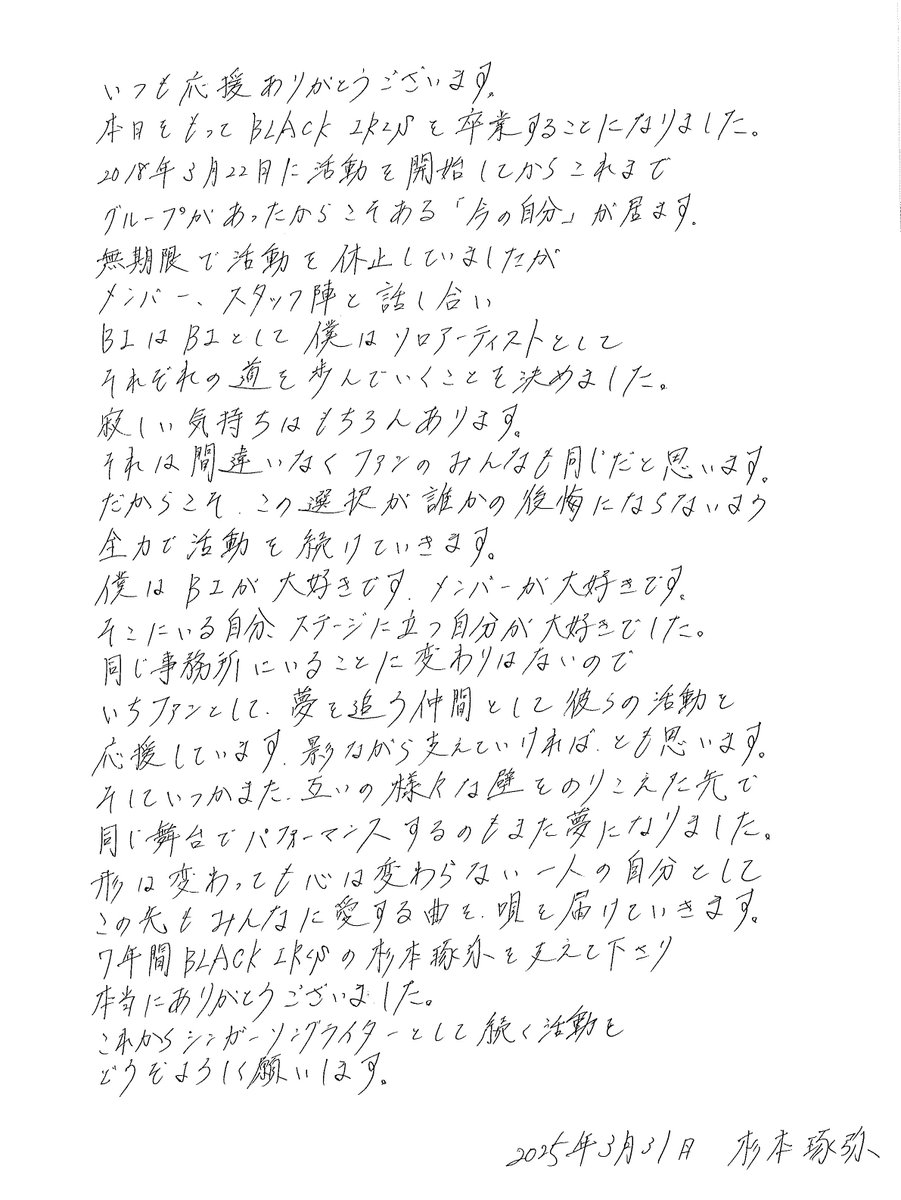 いつも応援ありがとうございます。
本日をもってBLACK IRISを卒業することになりました。
2018年3月22日に活動を開始してからこれまで
グループがあったからこそある「今の自分」が居ます。
無期限で活動を休止していましたが
メンバー、スタッフ陣と話し合い
BIはBIとして僕はソロアーティストとして
それぞれの道を歩んでいくことを決めました。
寂しい気持ちはもちろんあります。
それは間違いなくファンのみんなも同じだと思います。
だからこそ、この選択が誰かの後悔にならないよう
全力で活動を続けていきます。
僕はBIが大好きです、メンバーが大好きです。
そこにいる自分、ステージに立つ自分が大好きでした。
同じ事務所にいることに変わりはないので
いちファンとして、夢を追う仲間として彼らの活動を
応援しています、影ながら支えていければ、とも思います。
そしていつかまた、互いの様々な壁をのりこえた先で
同じ舞台でパフォーマンスするのもまた夢になりました。
形は変わっても心は変わらない一人の自分として
この先もみんなに愛する曲を、唄を届けていきます。
7年間BLACK IRISの杉本琢弥を支えて下さり
本当にありがとうございました。
これからシンガーソングライターとして続く活動を
どうぞよろしく願いします。
2025年3月31日 杉本琢弥